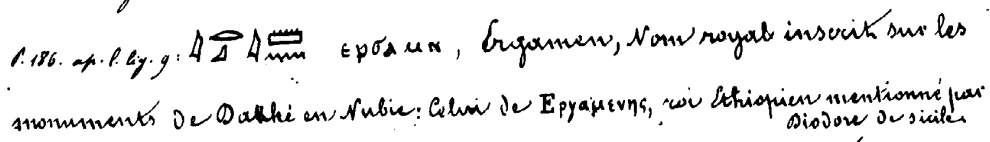 P. 186. ap. l. lig. 9: 𓈎𓂋𓈎𓏠𓈖 ⲉⲣⲅⲁⲙⲛ, Ergamen, Nom royal inscrit sur les
monuments de Dakké en Nubie: Celui de Εργαμενης, roi Ethiopien mentionné par
Diodore de sicile.